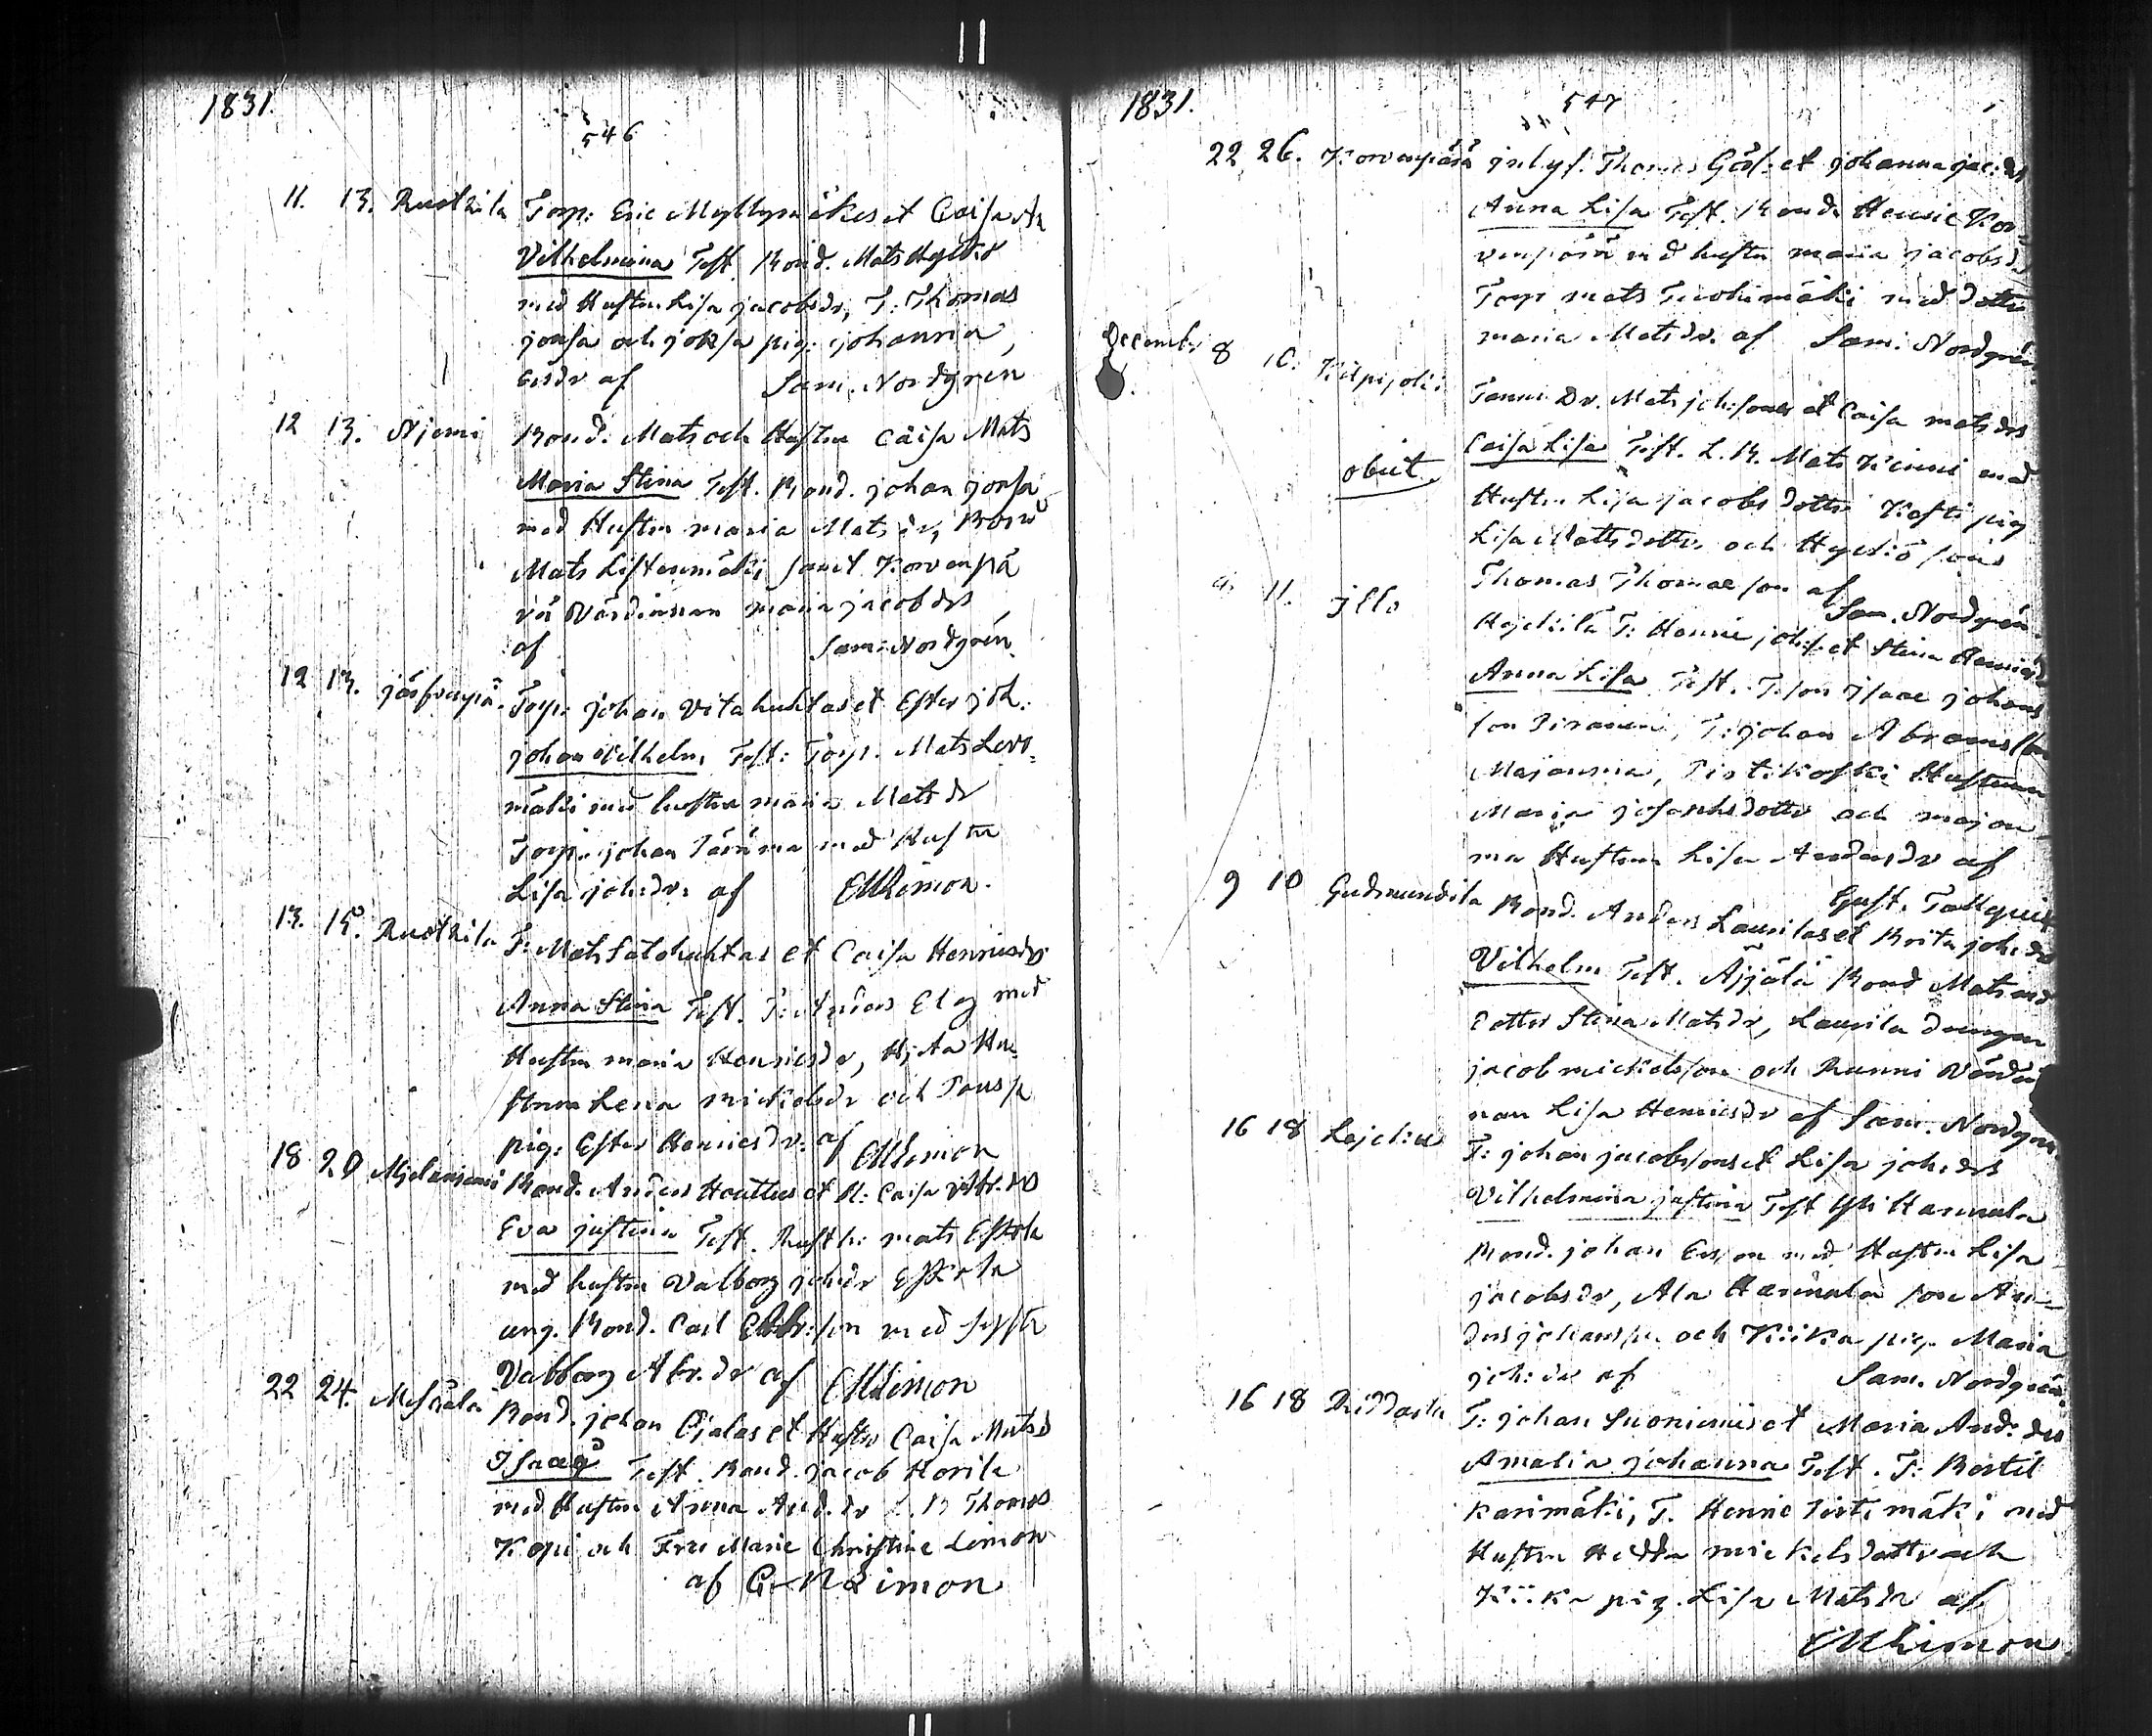 1831.
546
11. 13. Ruokila Torp: Eric Myllymäkes et Caisa An
Vilhelmina Test Bond. Mats Hyltiö
med Hustru Lisa jacobsdr, T: Thomas
jonsa och jonsa pig. johanna,
Ersdr af Sam. Nordgren
12 13. Njemi Bond: Mats och Hustru Caisa Mats
Maria Stina Test. Bond. johan jonsa
med Hustru maria Matsdr, Bond
Mats Listenmäki samt Korvenpä
vä Värdinnan maria jacobdr
af Sam: Nordgrén
12 13. Torp: johan Vitahuhtas et Ester joh.
johan Vilhelm, Test: Torp. Mats Levo=
mäki med hustru maria Matsdr
Torp. johan med Hustru
Lisa joh:dr: af Limon.
13. 15. Ruokila T: Mats Salohuhtas et Caisa Henricsdr
Anna Stina Test. T: Anders Elg med
Hustru maria Henricsdr, Hj: ta Hu=
strun Lena mickelsdr och Pousa
pig. Ester Henricsdr: af Limon
18 20 Bond. Anders et H: Caisa
Eva justina Test. Rusth: mats Eskola
med hustru Valborg joh:dr Eskola
ung. Bond. Carl son med syster
Valborg Abr.dr af Limon
22 24. Bond. johan Ojalas et Hustru Caisa Matsd
Isaac Test. Bond. jacob Horila
med Hustru Anna And.dr L. B Thomas
Kopi och Fru Marie Christine Limon
af Limon
1831.
547
22 26. Korvenpää jnhys. Thomas Gösl: et johanna jac:dr
Anna Lisa Test. Bond. Henric Kor=
venpää med hustru maria jacobsdr
Torp mats Tuokimäki med dotter
maria Matsdr. af Sam: Nordgrén
December 8 10. Kilpijoki Dr. Mats joh:sons et Caisa matsdr
obiit Caisa Lisa Test. L. B. Mats Kinni med
Hustru Lisa jacobs dotter Koski pig
Lisa Matts dotter och Hyckiö sons
Thomas Thomae son af Sam. Nordgrén.
9 11. jllo T: Henric joh:s. et Stina Henricsd
Anna Lisa Test. T: son jsaac johans
son Piranen, T: johan Abrams son
Majanma, Pirtikoski Hustrun
Maria josephsdotter och majan=
ma Hustrun Lisa Andersdr af
Gust. Tallquist
9 10 Gudmundila Bond. Anders Laurilas et Brita joh:dr
Vilhelm Test. Äjjälä Bond Mats med
dotter Stina Matsdr, Laurila drengen
jacob mickelsson och Runni Värdin
nan Lisa Henricsdr af Sam. Nordgren.
16 18 T: johan jacobsons et Lisa joh:drs
Vilhelmina justina Test Yli Hannula
Bond. johan Ersson med Hustru Lisa
jacobsdr, Ala Hannula son An=
ders johansson och Kiika pig. Maria
joh:dr af Sam. Nordgrén.
16 18 T: johan Suoniemis et Maria And: drs
Amalia johanna Test. T: Bertil
Karimäki, T. Henric Pirtimäki med
Hustru Hedda mickelsdotter och
Kiika pig. Lisa Matsdr af
Limon